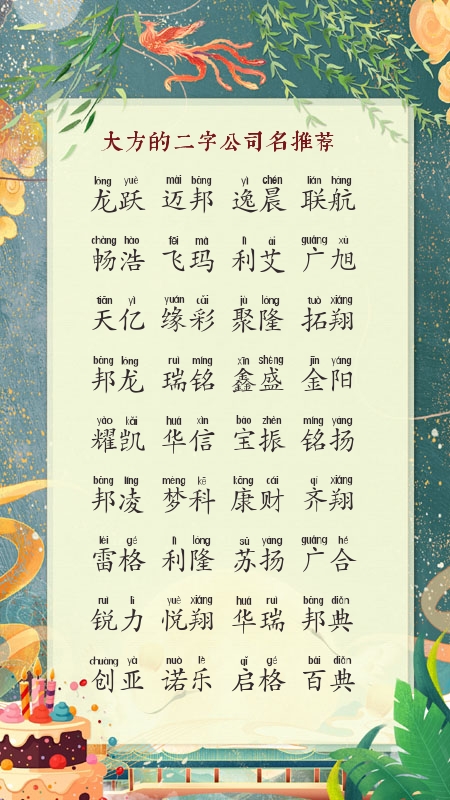 大方的二字公司名推荐
lóng yuè mài bāng yì chén lián háng
龙跃 迈邦 逸晨 联航
chàng hào fēi mǎ lì ài guǎng xù
畅浩 飞玛 利艾 广旭
tiān yì yuán cǎi jù lóng tuò xiáng
天亿 缘彩 聚隆 拓翔
bāng lóng ruì míng xīn shèng jīn yáng
邦龙 瑞铭 鑫盛 金阳
yào kǎi huá xìn bǎo zhèn míng yáng
耀凯 华信 宝振 铭扬
bāng líng mèng kē kāng cái qí xiáng
邦凌 梦科 康财 齐翔
léi gé lì lóng sū yáng guǎng hé
雷格 利隆 苏扬 广合
ruì lì yuè xiáng huá ruì bāng diǎn
锐力 悦翔 华瑞 邦典
chuàng yà nuò lè qǐ gé bǎi diǎn
创亚 诺乐 启格 百典